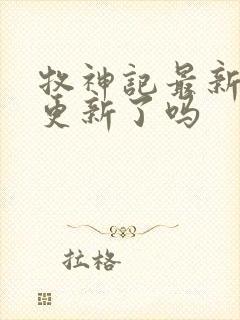 牧神記最新
更新了吗
拉格